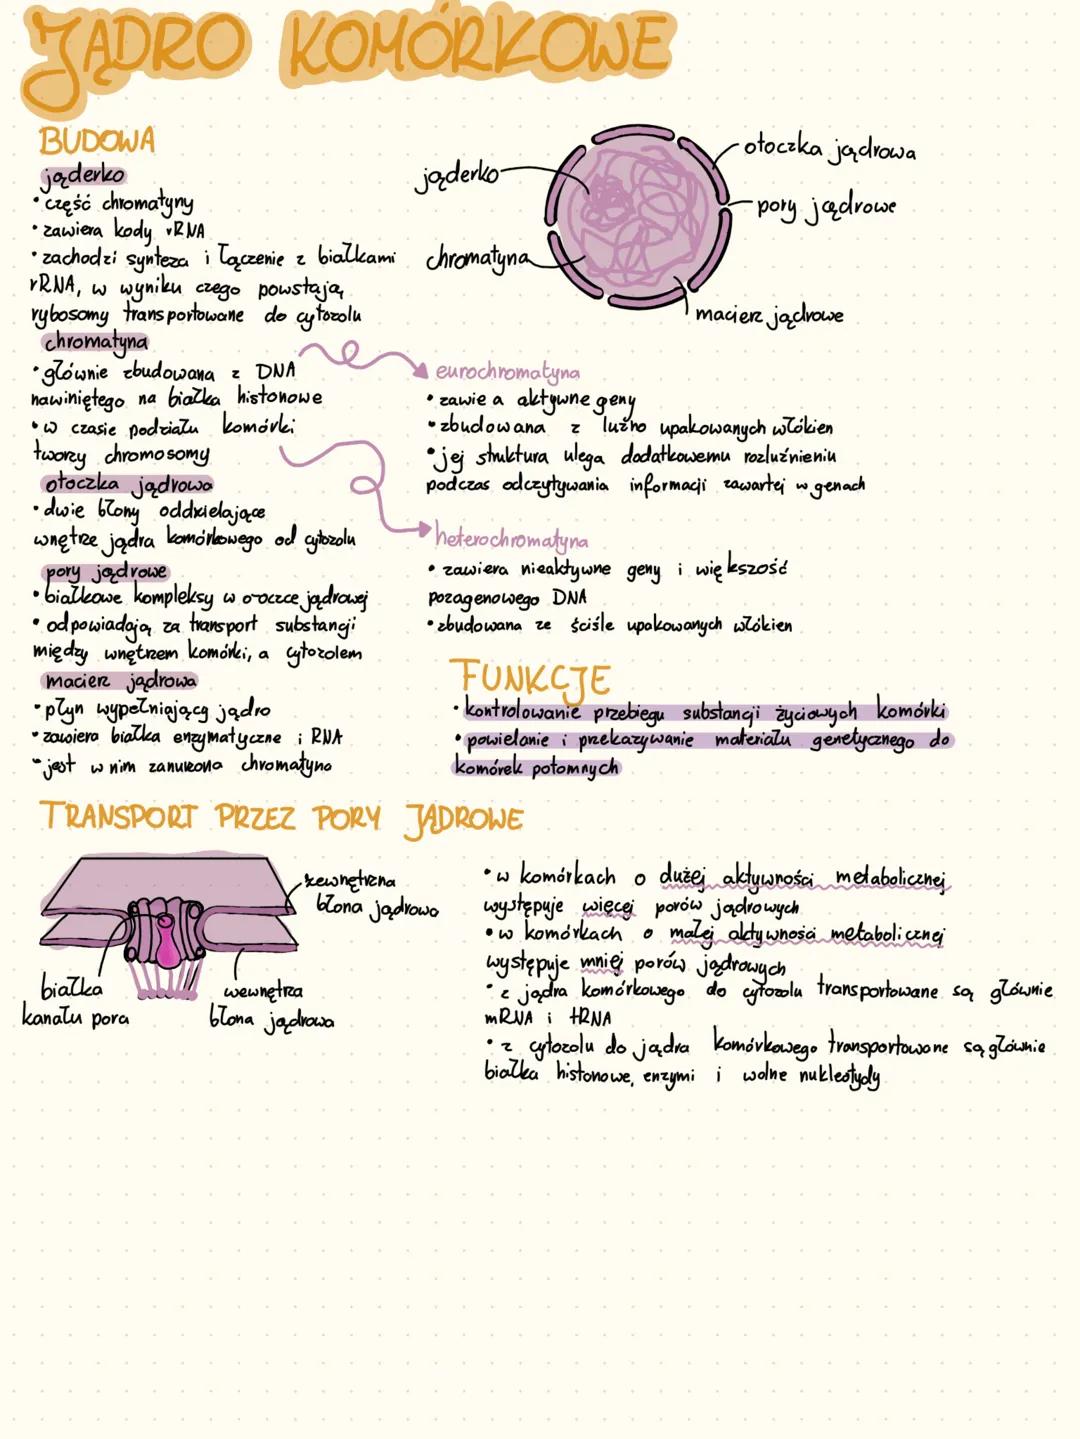 JĄDRO KOMÓRKOWE
BUDOWA
jąderko
• część chromatyny
• zawiera kody rRNA
• zachodzi synteza i łączenie z białkami
rRNA, w wyniku czego powstają
rybosomy transportowane do cytozolu
chromatyna
• głównie zbudowana z DNA
nawiniętego na białka histonowe
• w czasie podziału komórki
tworzy chromosomy
otoczka jądrowa
• dwie błony oddzielające
wnętrze jądra komórkowego od cytozolu
pory jądrowe
• białkowe kompleksy w otoczce jądrowej
• odpowiadają za transport substancji
między wnętrzem komórki, a cytozolem
macierz jądrowa
• płyn wypełniający jądro
• zawiera białka enzymatyczne i RNA
• jest w nim zanurzona chromatyna
jąderko
chromatyna
otoczka jądrowa
pory jądrowe
macierz jądrowe
eurochromatyna
• zawie a aktywne geny
• zbudowana z luźno upakowanych włókien
• jej struktura ulega dodatkowemu rozluźnieniu
podczas odczytywania informacji zawartej w genach
heterochromatyna
• zawiera nieaktywne geny i większość
pozagenowego DNA
• zbudowana ze ściśle upakowanych włókien
FUNKCJE
• kontrolowanie przebiegu substancji życiowych komórki
• powielanie i przekazywanie materiału genetycznego do
komórek potomnych
TRANSPORT PRZEZ PORY JĄDROWE
zewnętrzna
błona jądrowa
białka
kanału pora
wewnętrza
błona jądrowa
• w komórkach o dużej aktywności metabolicznej
występuje więcej porów jądrowych
• w komórkach o małej aktywności metabolicznej
występuje mniej porów jądrowych
• z jądra komórkowego do cytozolu transportowane są głównie
mRNA i tRNA
• z cytozolu do jądra komórkowego transportowane są głównie
białka histonowe, enzymi i wolne nukleotydy